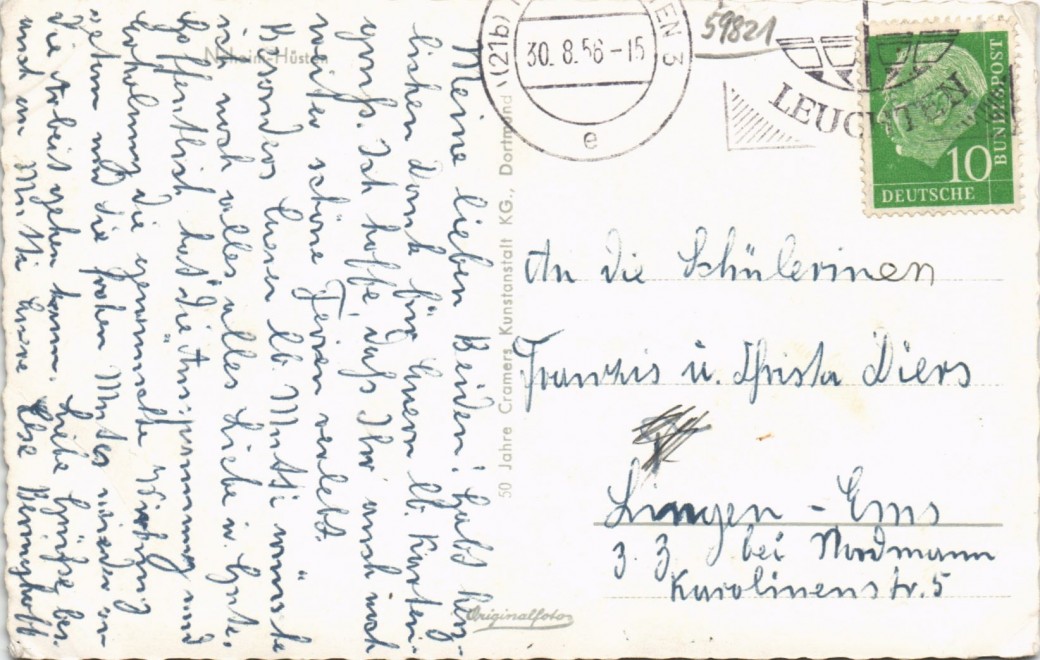 Neheim-Hüsten
Meine lieben Beiden! Habt herz-
lichen Dank für Euern lb. Karten-
gruß. Ich hoffe, daß Ihr auch noch
weiter schöne Ferien verlebt.
Besonders Euern lb. Mutti wünsche
ich noch alles alles Liebe u. Gute.
Hoffentlich hat die Entspannung und
Erholung die gewünschte Wirkung
getan und die frohen Mutes wieder an
die Arbeit gehen kann. Liebe Grüße, bes.
auch an Mutti Eure Else
50 Jahre Cramers Kunstanstalt KG., Dortmund
Originalfoto
(21b)
EN 3
30.8.56-15
e
59821
LEUCHTEN
10
DEUTSCHE
BUNDESPOST
An die Schülerinnen
Franzis u. Christa Diers
Lingen - Ems
z. Z bei Nordmann
Karolinenstr. 5